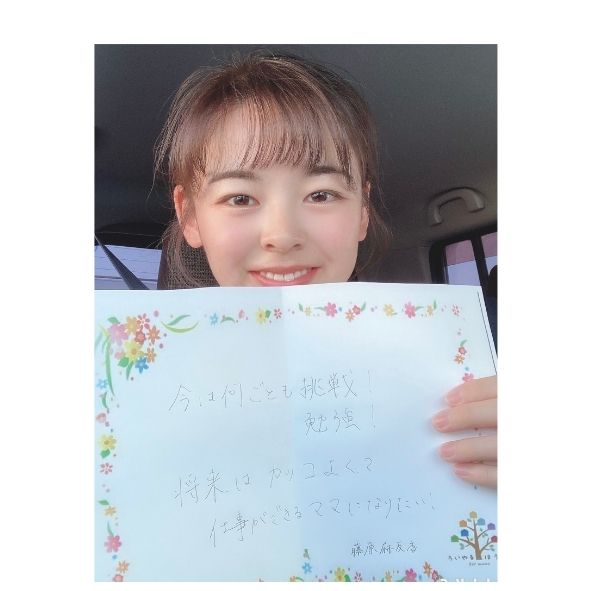 今は何ごとも挑戦！
勉強！
将来は カッコよくて
仕事ができるママになりたい！
藤原麻友香